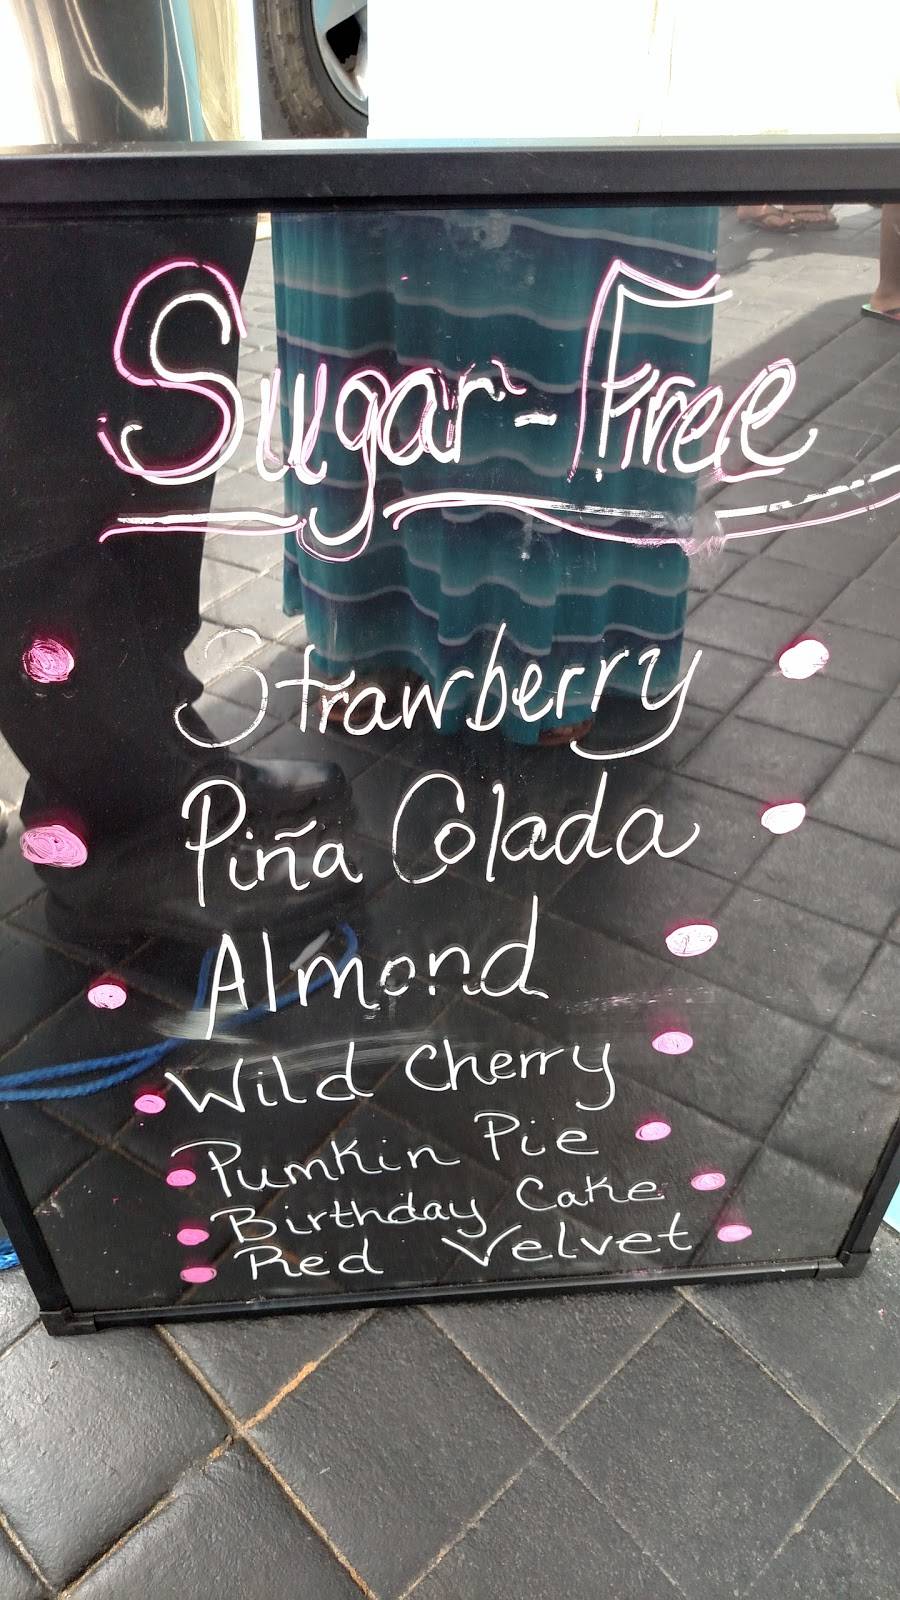 Sugar-Free
Strawberry
Piña Colada
Almond
Wild Cherry
Pumkin Pie
Birthday Cake
Red Velvet